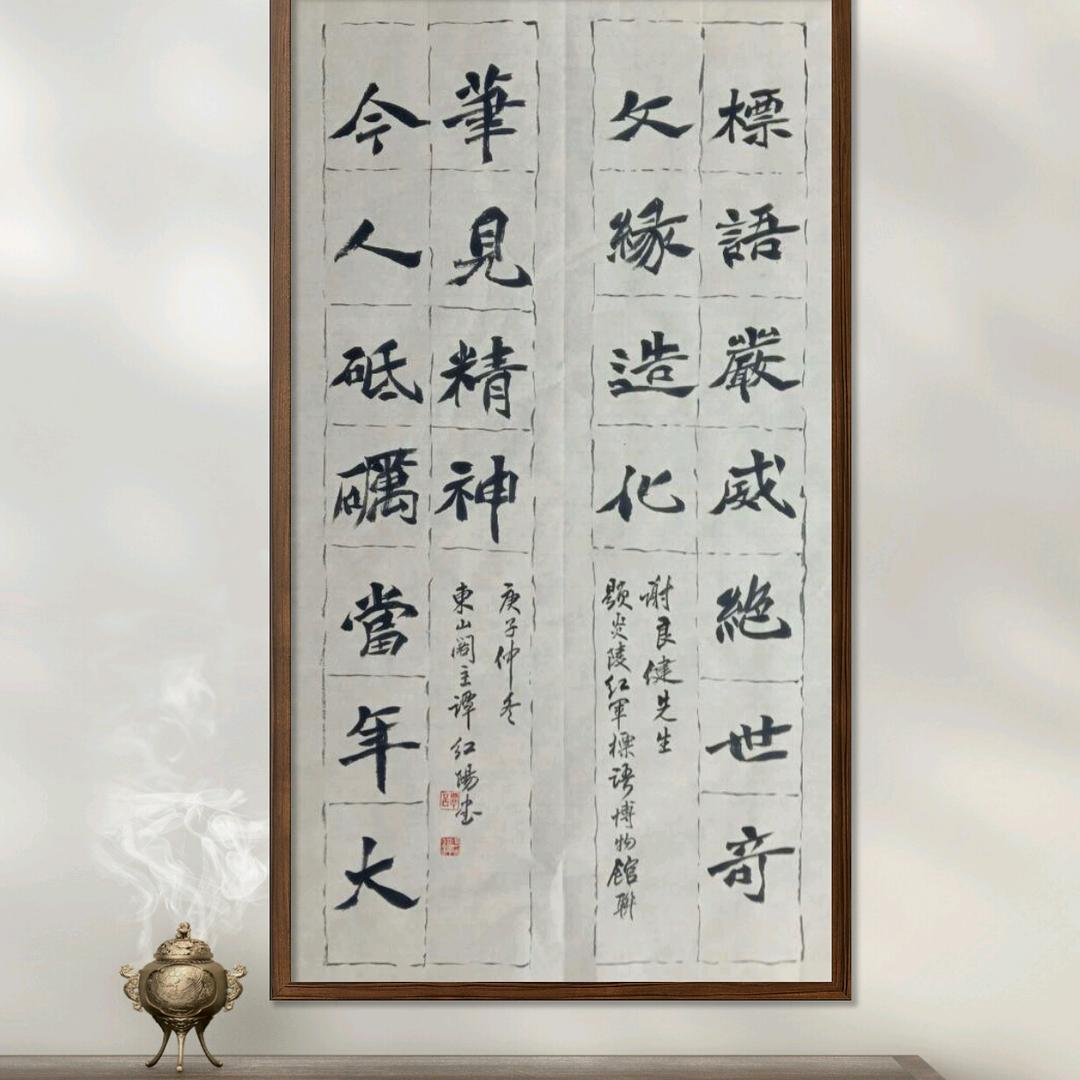 標語嚴威絕世奇
文緣造化
谢良健先生
题炎陵红軍標语博物館聯
今人砥礪當年大
筆見精神
庚子仲冬
東山阁主谭红陽书